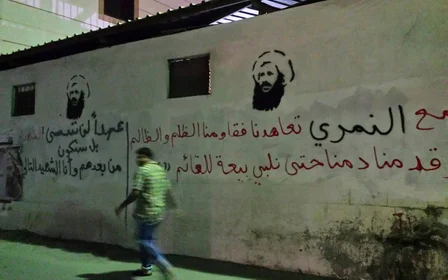 مع النمري تعاهدنا فقاومنا الظلم والظالم
وقدمنا دمنا حتى نلبي بيعة للقائم
عهداً لن ننسى
بل سنكون
من بعدهم وأنا الشهيد التالي